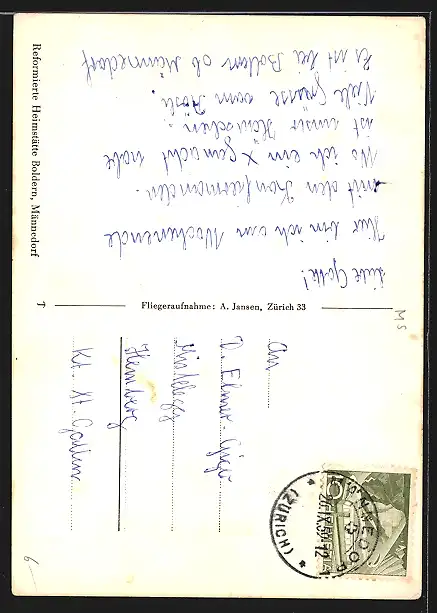 Reformierte Heimstätte Boldern, Männedorf
Liebe Gotte!
Hier bin ich am Wochenende
mit den Konfirmanden.
Wo ich ein X gemacht habe
ist unser Häuschen.
Viele Grüsse vom Rösli.
Es ist bei Boldern ob Männedorf
Fliegeraufnahme: A. Jansen, Zürich 33
MS
An
D. Elmer-Giger
Hemberg
Kt. St. Gallen
MÄNNEDORF
(ZÜRICH)
6